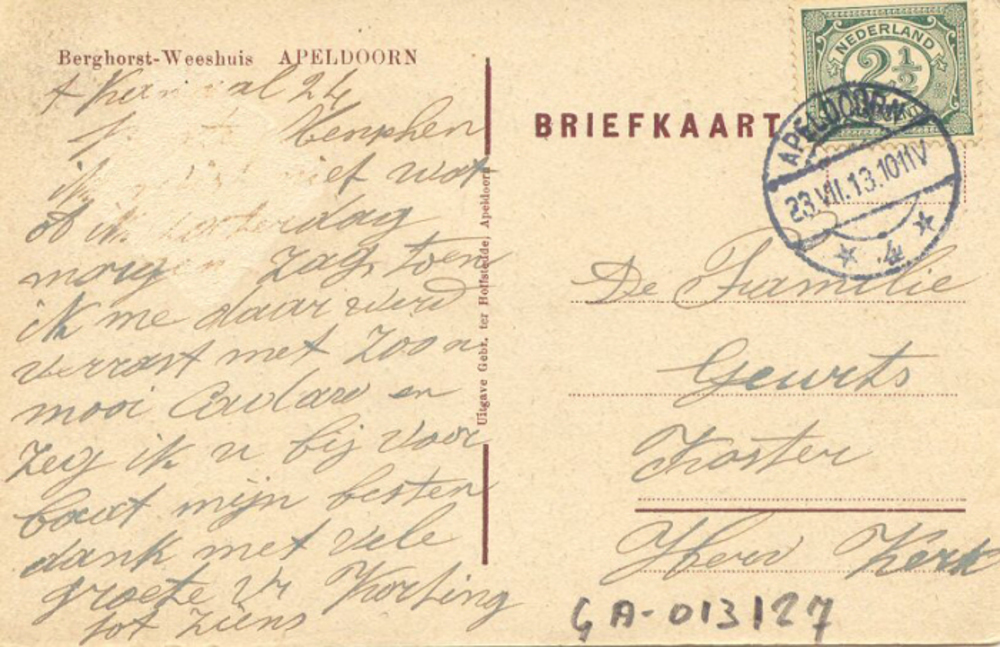 Berghorst-Weeshuis APELDOORN
24
Menschen
niet wat
of ik zaterdag
morgen zag, toen
ik me daar werd
verrast met zoo n
mooi Cadaro en
zeg ik u bij voor
baat mijn besten
dank met vele
groete vr Korting
tot ziens
Uitgave Gebr. ter Hofstedde, Apeldoorn
BRIEFKAART
NEDERLAND
2½
APELDOORN
23.VII.13.1011V
4
De Familie
Geurts
Koster
Herv Kerk
GA-013127